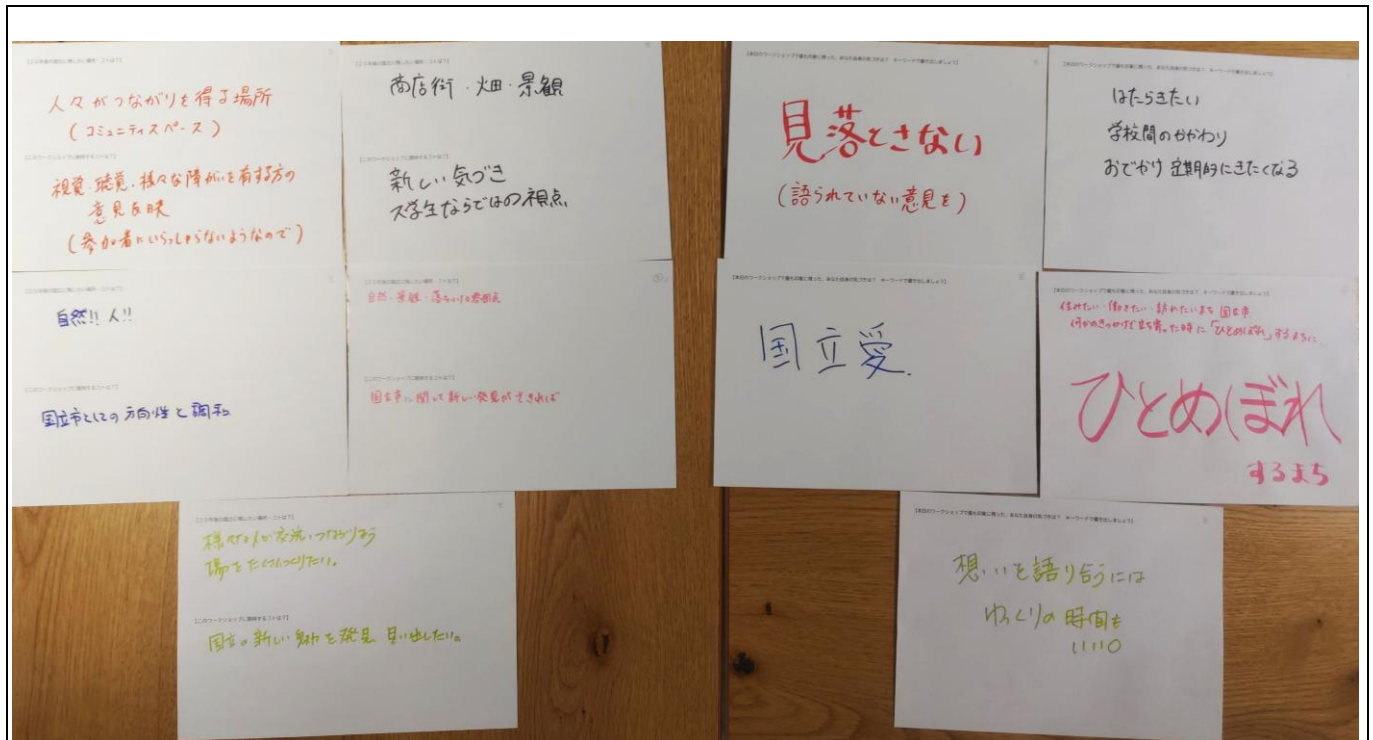 【20年後の国立に残したい場所・コトは？】
人々がつながりを得る場所
（コミュニティスペース）
【このワークショップに期待するコトは？】
視覚、聴覚、様々な障がいを有する方の
意見反映
（参加者にいらっしゃらないようなので）
【20年後の国立に残したい場所・コトは？】
商店街・畑・景観
【このワークショップに期待するコトは？】
新しい気づき
大学生ならではの視点
【20年後の国立に残したい場所・コトは？】
自然!! 人!!
【このワークショップに期待するコトは？】
国立市としての方向性と調和
【20年後の国立に残したい場所・コトは？】
自然・景観・落ちつける雰囲気
【このワークショップに期待するコトは？】
国立市に関して新しい発見ができれば
【20年後の国立に残したい場所・コトは？】
様々な人が交流、つながりあう
場をたくさんつくりたい。
【このワークショップに期待するコトは？】
国立の新しい魅力を発見、見い出したい。
【本日のワークショップで最も印象に残った、あなた自身の気づきは？ キーワードで書き出しましょう】
見落とさない
（語られていない意見を）
【本日のワークショップで最も印象に残った、あなた自身の気づきは？ キーワードで書き出しましょう】
はたらきたい
学校間のかかわり
おでかけ 定期的にきたくなる
【本日のワークショップで最も印象に残った、あなた自身の気づきは？ キーワードで書き出しましょう】
国立愛.
【本日のワークショップで最も印象に残った、あなた自身の気づきは？ キーワードで書き出しましょう】
住みたい・働きたい・訪れたいまち 国立市
何かのきっかけで立ち寄った時に「ひとめぼれ」するまちに
ひとめぼれ
するまち
【本日のワークショップで最も印象に残った、あなた自身の気づきは？ キーワードで書き出しましょう】
想いを語り合うには
ゆっくりの時間も
いい○